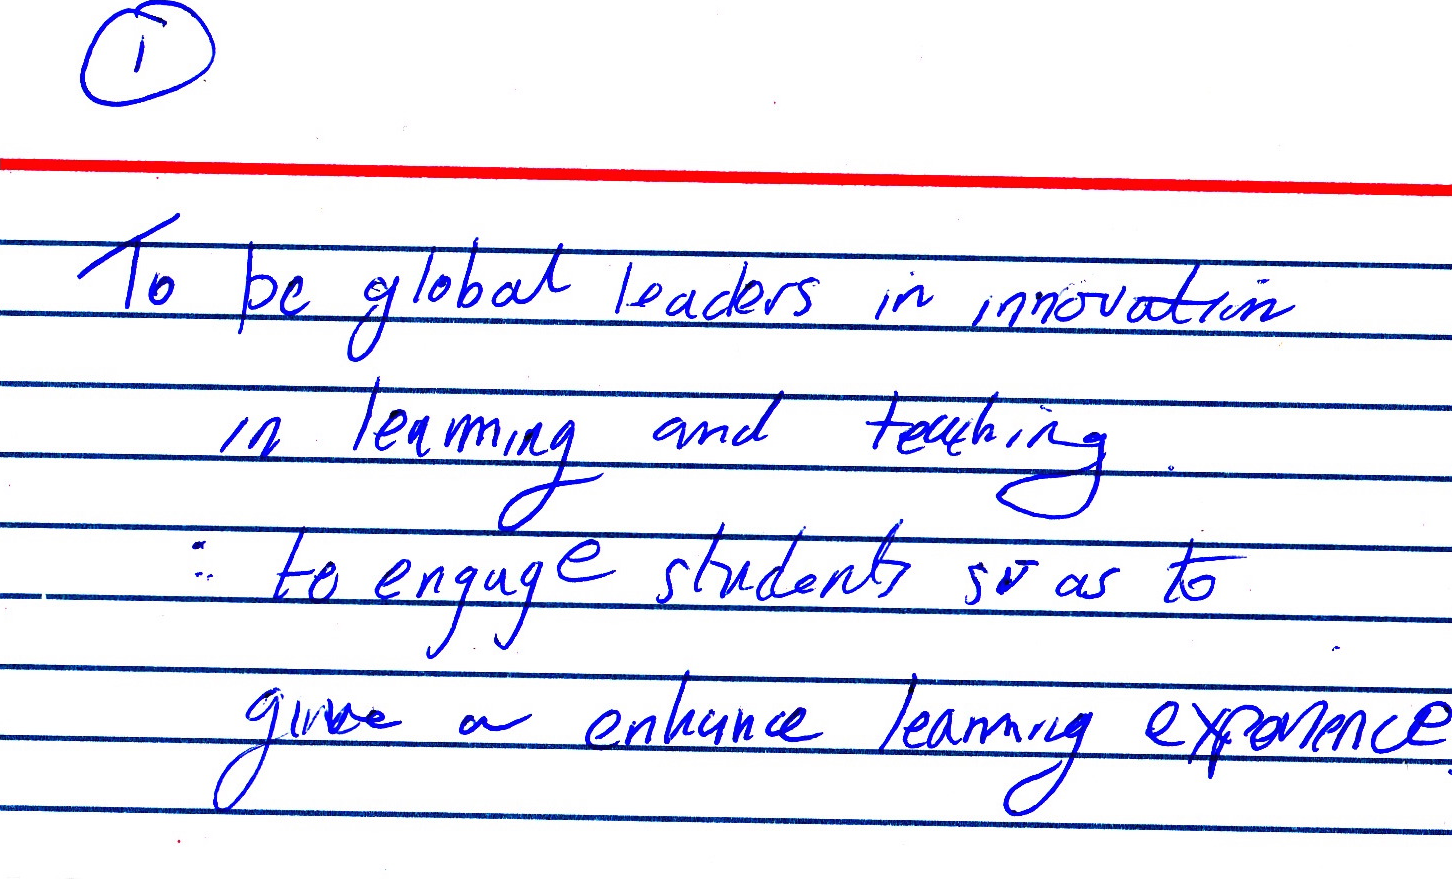 1
To be global leaders in innovation
in learning and teaching.
: to engage students so as to
give a enhance learning experience.